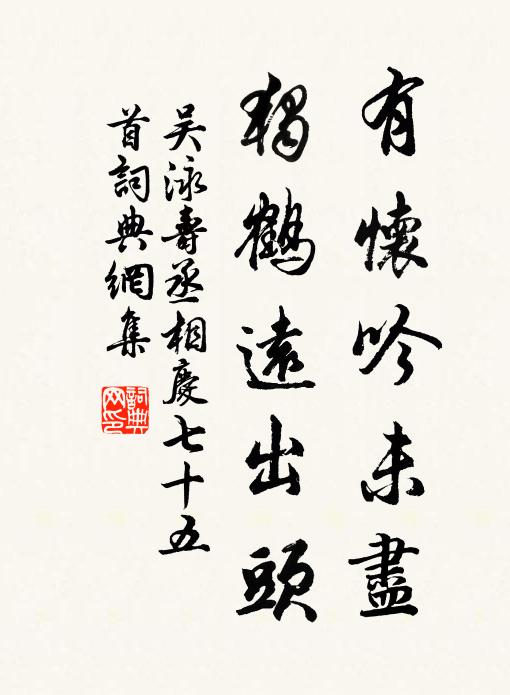 有懷吟未盡
獨鶴遠出頭
吴泳壽丞相慶七十五
首詞典網集
詞典网印